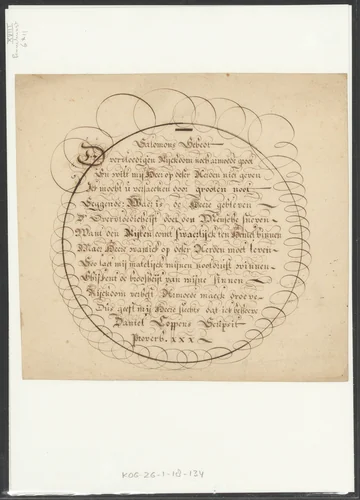 Salomons Gebedt
overvloedigen Rijckdom noch armoede groot
En wilt mij Heer op deser Aerden niet geven
Ick mocht u versaecken door grooten noot
Seggende: Waer is de Heere gebleven
D' Overvloedicheijt doet den Mensche sneven
Want den Rijcken comt swaerlijck ten Hemel binnen
Maer Heere want ick op deser Aerden moet leven
Soo laet mij matelijck mijnen nootdruft winnen
de broosheijt van mijne sinnen
Rijckdom verheft Armoede maeckt droeve
Dus geeft mij Heere slechts dat ick behoeve
Daniel Coppens Scripsit
Proverb. xxx
KOG-ZG-1-18-134